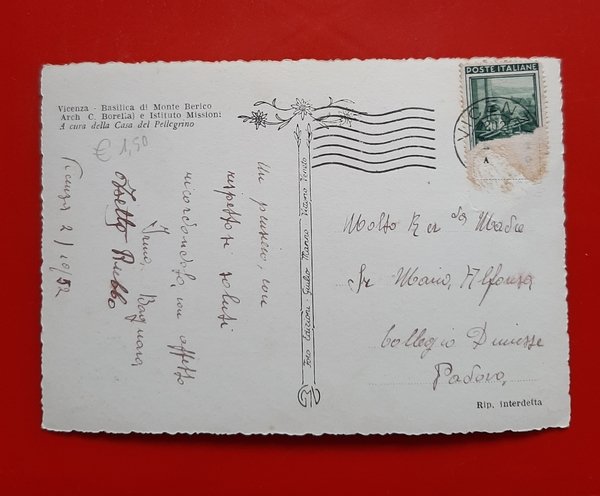 Vicenza - Basilica di Monte Berico
Arch C. Borella) e Istituto Missioni
A cura della Casa del Pellegrino
€ 1,50
Un pensiero, con
rispettosi saluti
ricordandola, con affetto
Irma Bagnara
Rubbo
2/10/52
Foto Edizioni Giulio Marino
POSTE ITALIANE
VICENZA
A
Molto Rev da Madre
Sr Maria Alfonsa
Collegio Dimesse
Padova
Rip. interdetta